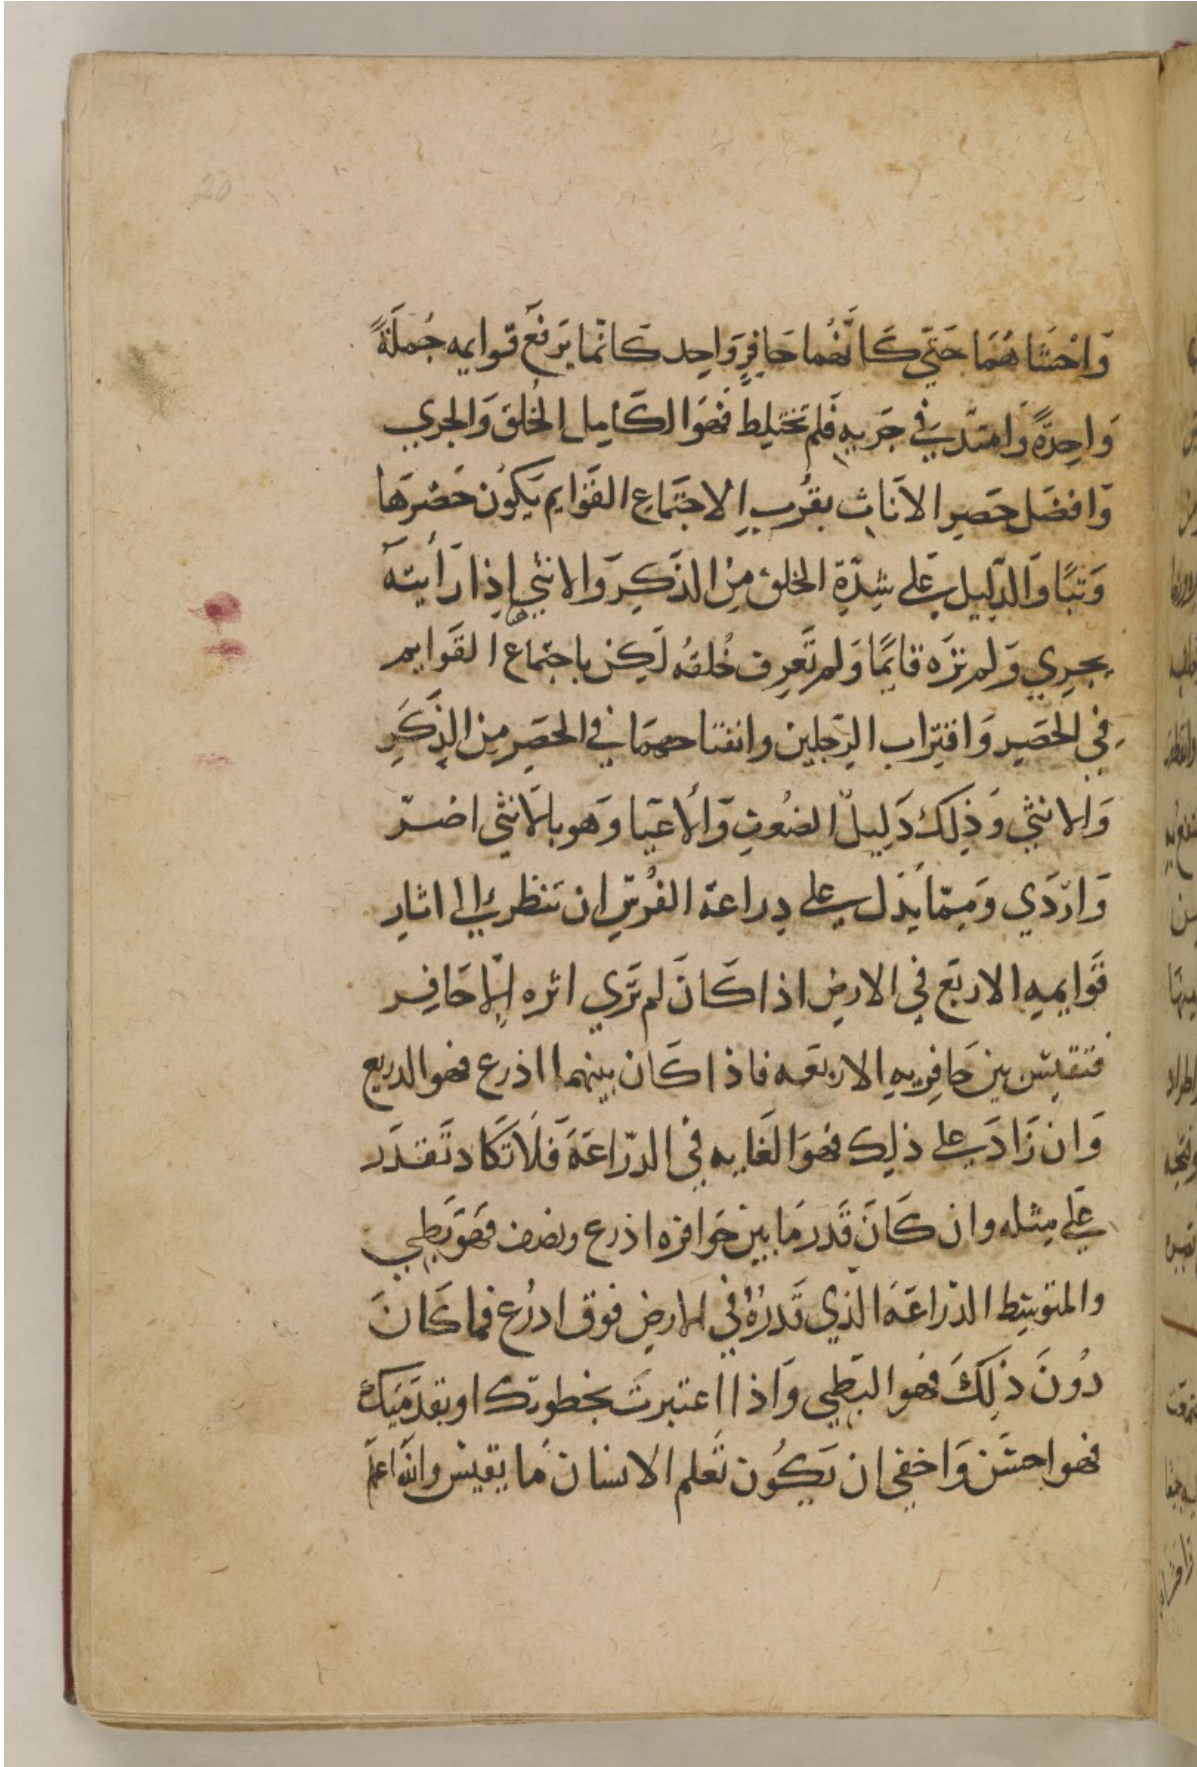 وَاحْتشَاهُمَا حَتّي كَانَّهُما حَافِرٍ وَاحِد كَانّمَا يَرفَع قوايمه جُملَةً
وَاحِدَةً وَامتَدّ في جَريهِ فَلم تختَلِط فَهوَ الكَامِل الخُلق وَالجري
وَافضَل حَصرِ الاَناث بقُربِ الاجتَماعِ القَوايم يَكوُن حَضرَها
وَثبًا وَالدّلِيل عَلى شِدّةِ الخلق مِنَ الذَكِر وَالانثي اِذا رَأيتَه
يجرِي وَلم تَرَه قايمًا وَلم تَعرِف خُلقُه لَكِن باجتماع القَوايم
فِي الحَصِر وَافتِراب الرِجلين وانفتاحهمَا في الحَصِر مِنَ الذَكَرِ
وَالانثي وَذلِكَ دَلِيلّ الضُعفِ وَالاعيَا وَهو بالاَنثي اضرّ
وَاردَي وَمِمّا يَدَل علي دراعة الفُرسِ ان تنظر الي اثارِ
قَوايمهِ الاربَع فِي الارضِ اذا كَانَ لم تَرَي اثره اِلّا حَافِر
فتقيسَ بين حَافِريهِ الاربعَه فاذا كَان بينهما اذرع فهو الدريع
وَان زَادَ على ذلِك فهوَ الغَايه في الدّراعَةَ فَلاَ تَكَاد تَقدَر
عَلي مِثله وان كَانَ قَدَر مَا بين حَوافره اذرع ونصف فَهوَ بَطِي
والمتوسِط الدّراعَةَ الذّي قَدرُهُ فِي الارضِ فوق ادرُع فما كَانَ
دُونَ ذلِكَ فهو البَطِي وَاذا اعتبرتَ بخطوتك او بقدَميَك
فهو احسَن وَاخفِي ان يَكوُن تَعلم الانسان مَا يقيسَ والله اعلم